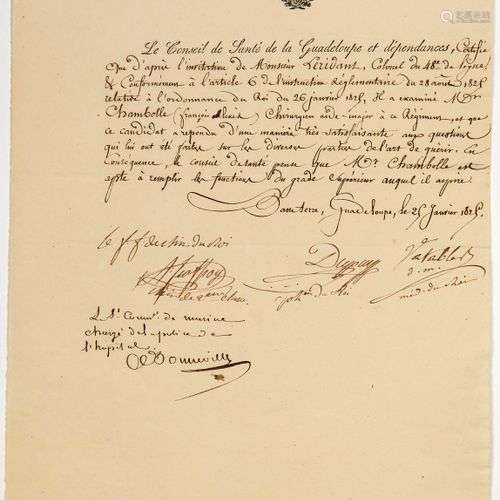 Le Conseil de Santé de la Guadeloupe et dépendances, Certifie
Que D'après l'invitation de Monsieur Léridant, Colonel du 48e de ligne,
& Conformément à l'article 6 de l'instruction Réglementaire du 28 août 1825
relative à l'ordonnance du Roi du 26 janvier 1825, Il a examiné Mr
Chambolle (françois Alexis) Chirurgien aide-major à ce Régiment, et que
ce candidat a répondu d'une manière très satisfaisante aux questions
qui lui ont été faites sur les diverses parties de l'art de guérir. En
conséquence, le conseil de santé pense que Mr Chambolle est
apte à remplir les fonctions du grade Supérieur auquel il aspire.
Basse terre, Guadeloupe, le 25 Janvier 182
du Roi
d. m.
méd. du Roi
Le S. Comre de marine
chargé de la police de
l'hopital